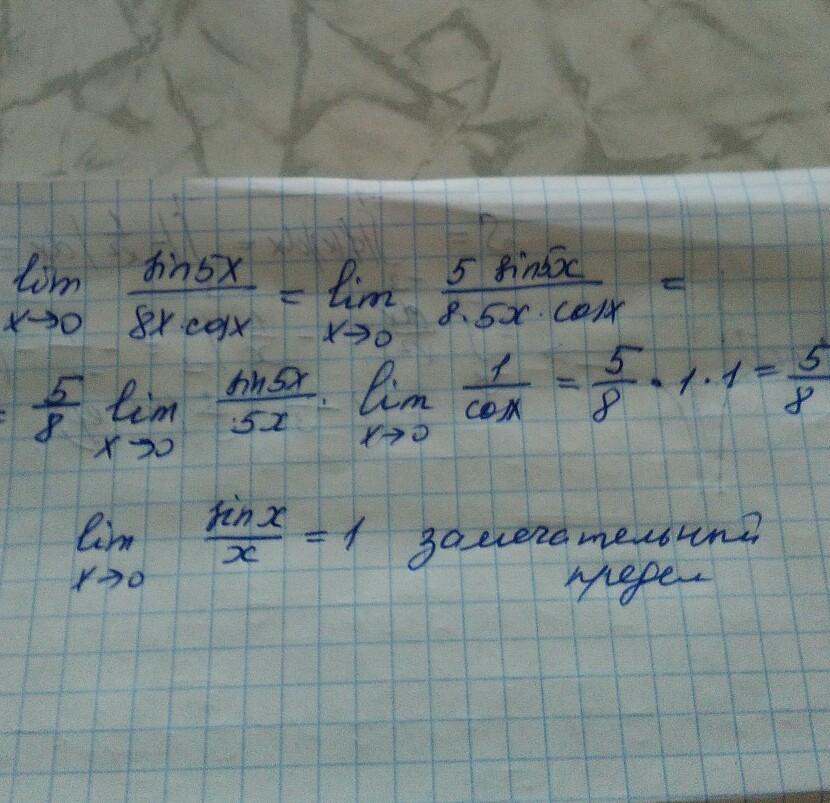 lim x→0 sin5x / 8x·cosx = lim x→0 5 sin5x / 8·5x·cosx =
= 5/8 lim x→0 sin5x / 5x · lim x→0 1 / cosx = 5/8 · 1 · 1 = 5/8
lim x→0 sinx / x = 1 замечательный
предел